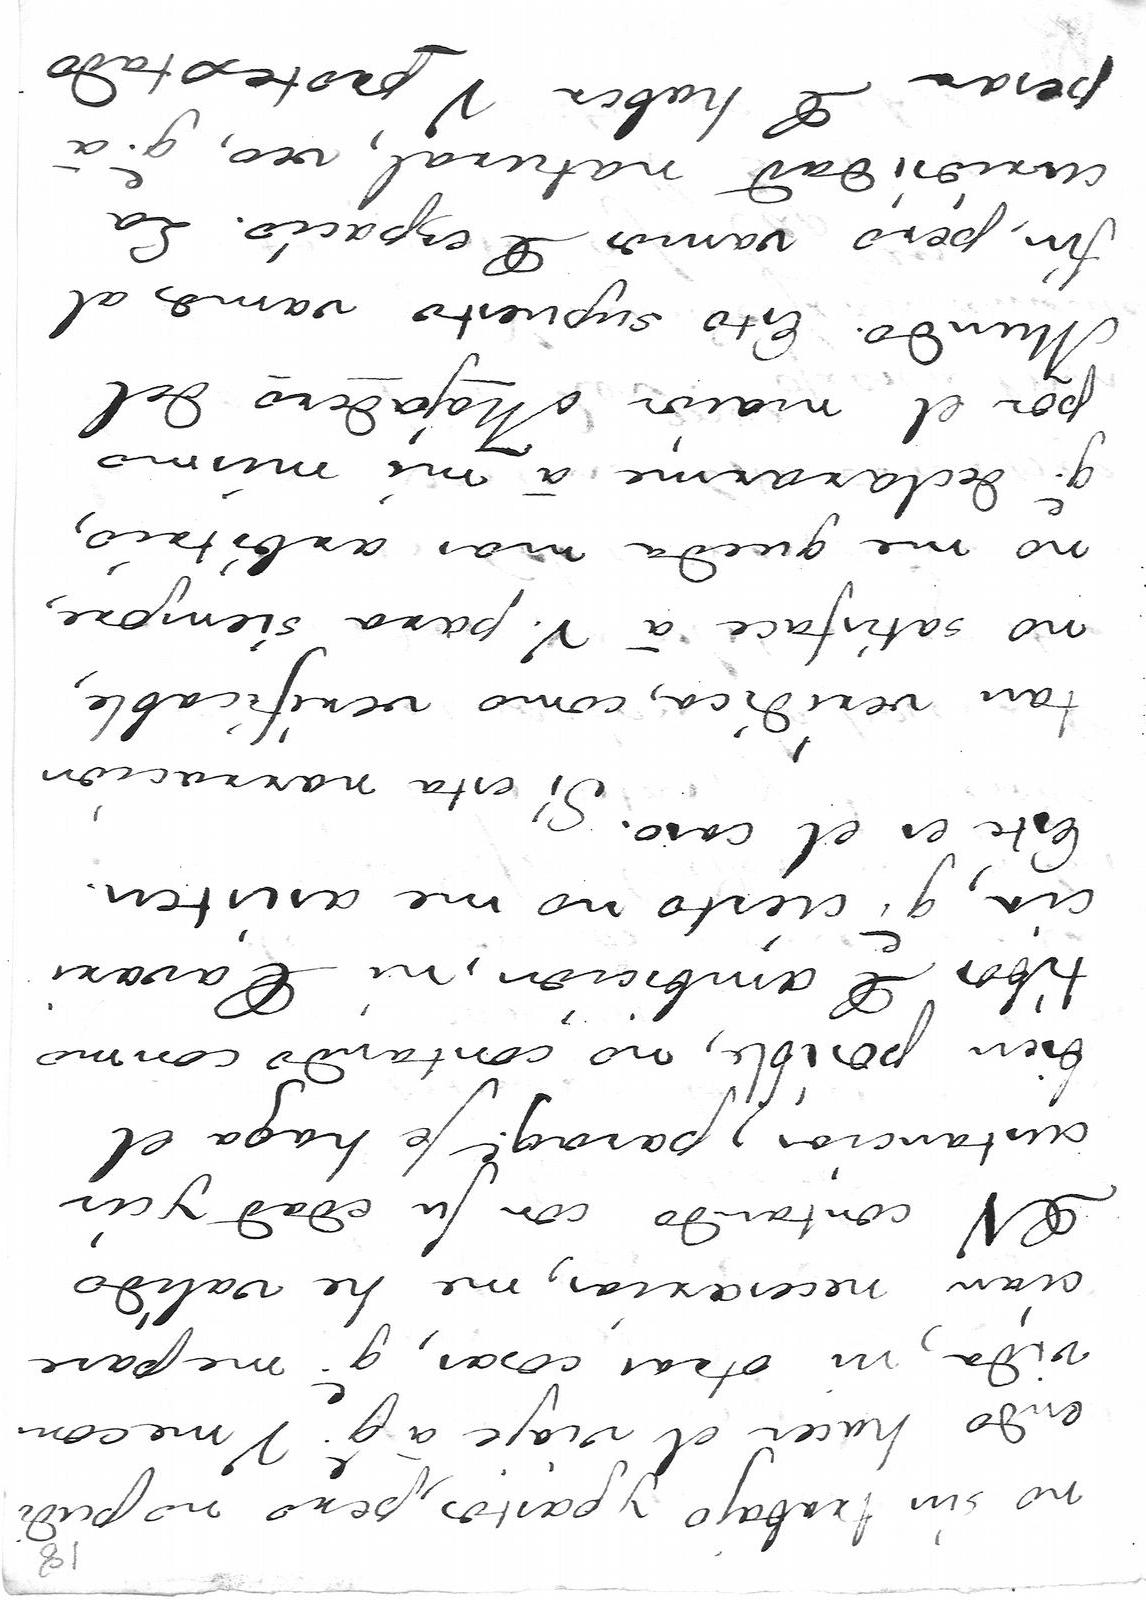 18
no sin trabajo y pastos, pero no pudi
endo hacer el viaje â q.e V mecon
vida, ni otras cosas, q.e mepare
cian necesarias, me he valido
DN contando con su edad ycir
custancias, y paraq.e se haga el
bien posible, no contando conmo
tibos de ambicion, ni Cavari
cia, q.e cierto no me asisten.
Este es el caso. Si esta narracion
tan veridica, como verificable,
no satisface â V. para siempre,
no me queda mas arbitrio,
q.e declararme â mi mismo
por el maior Majadero del
Mundo. Esto supuesto vamos al
fin, pero vamos de espacio. La
curiosidad natural, veo, q.e â
pesar de haber V protextado